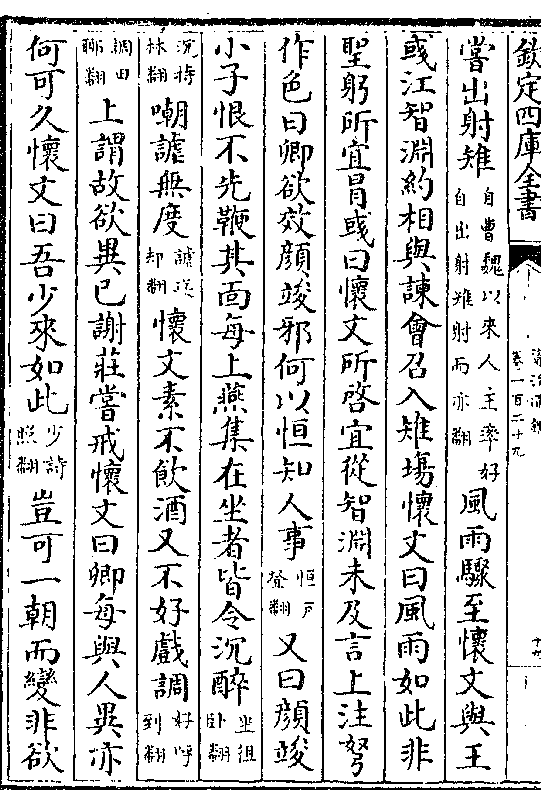 欽定四庫全書
資治通鑑
卷一百二十九
嘗出射雉自曹魏以來人主率好自出射雉射而亦翻風雨驟至懷文與王
彧江智淵約相與諫會召入雉塲懷文曰風雨如此非
聖躬所宜冒彧曰懷文所啓宜從智淵未及言上注弩
作色曰卿欲效顔竣邪何以恒知人事恒戶登翻又曰顔竣
小子恨不先鞭其面每上燕集在坐者皆令沉醉坐徂卧翻
沉持林翻嘲謔無度謔迄却翻懷文素不飲酒又不好戲調好呼到翻
調田聊翻上謂故欲異已謝莊嘗戒懷文曰卿每與人異亦
何可久懷文曰吾少來如此少詩照翻豈可一朝而變非欲